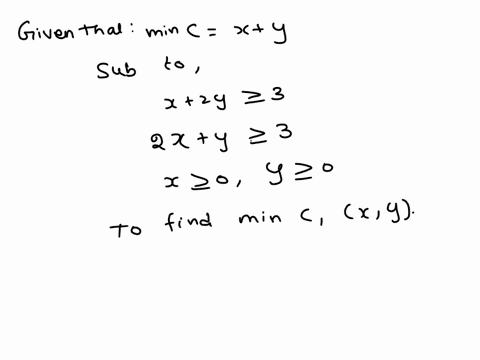 Given that: min C = x + y
Sub to,
x + 2y ≥ 3
2x + y ≥ 3
x ≥ 0, y ≥ 0
To find min C, (x, y).